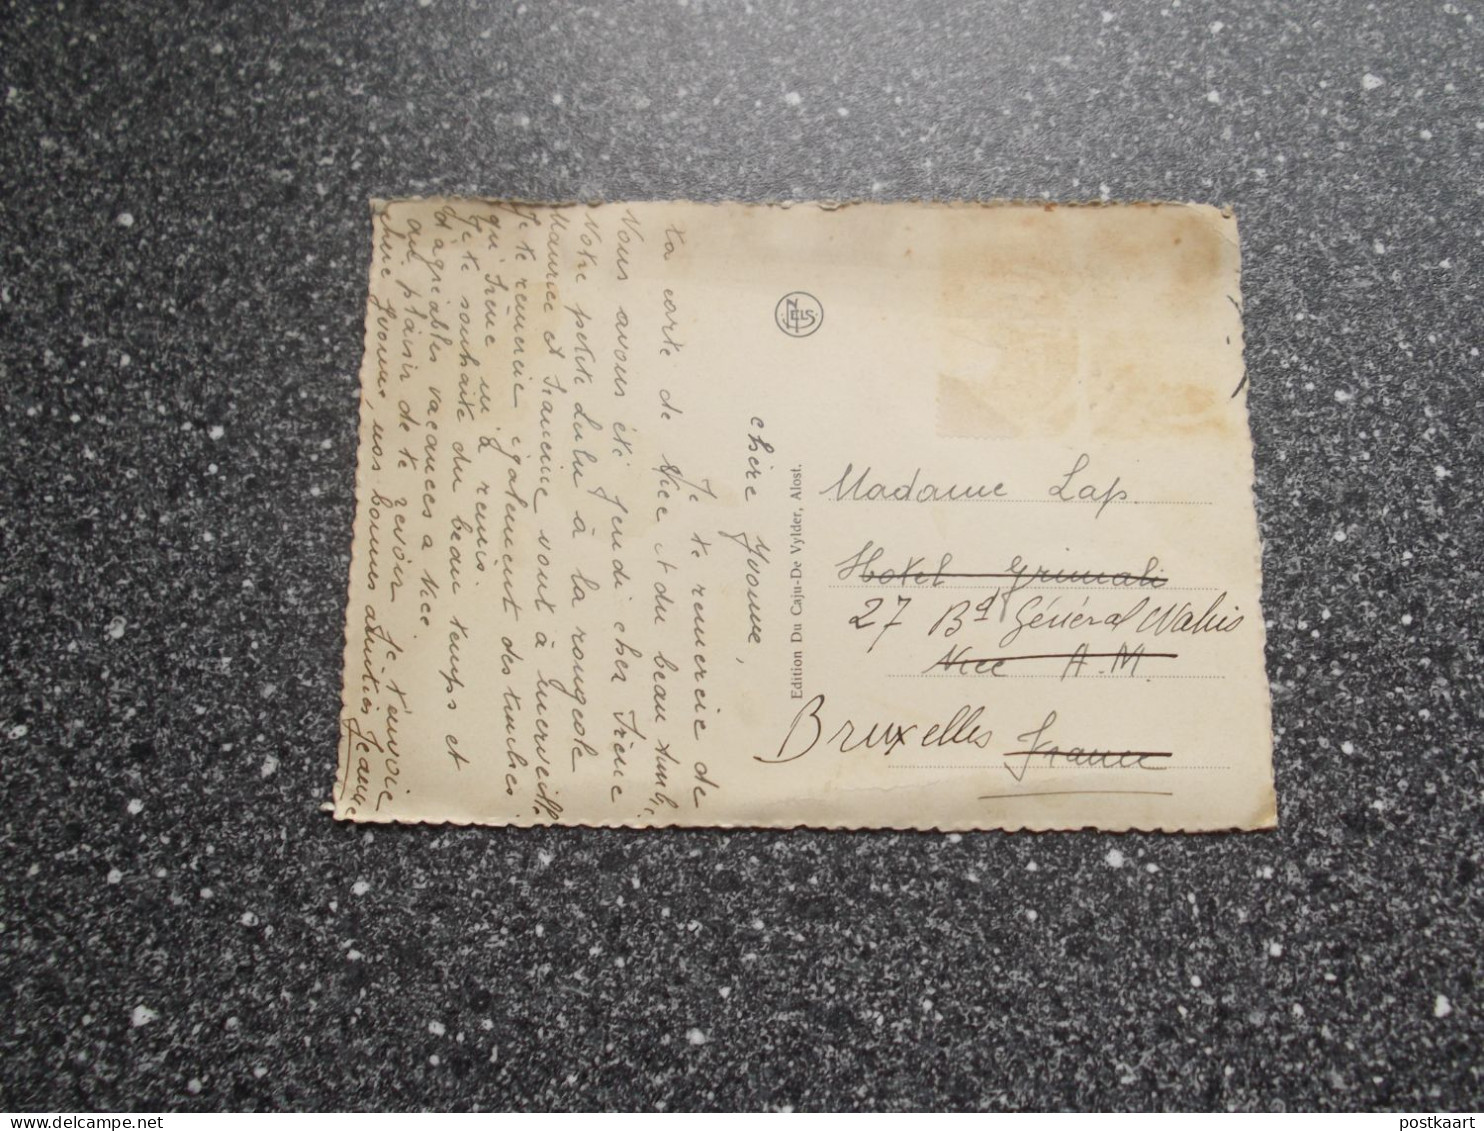 chère Yvonne,
Je te remercie de
ta carte de Nice et du beau timb.
Nous avons été jeudi chez Irène
Notre petite Lulu à la rougeole
Maurice et Francine vont à merveille
Je te remercie également des timbres
qu'Irène m'a remis.
Je te souhaite du beau temps et
d'agréables vacances à Nice
au plaisir de te revoir. Je t'envoie
chère Yvonne, nos bonnes amitiés Jeanne
NELS
Edition Du Caju-De Vylder, Alost.
Madame Lap.
Hotel Grimaldi
27 Bd Général Wahis
Nice A.M.
Bruxelles France
postkaart